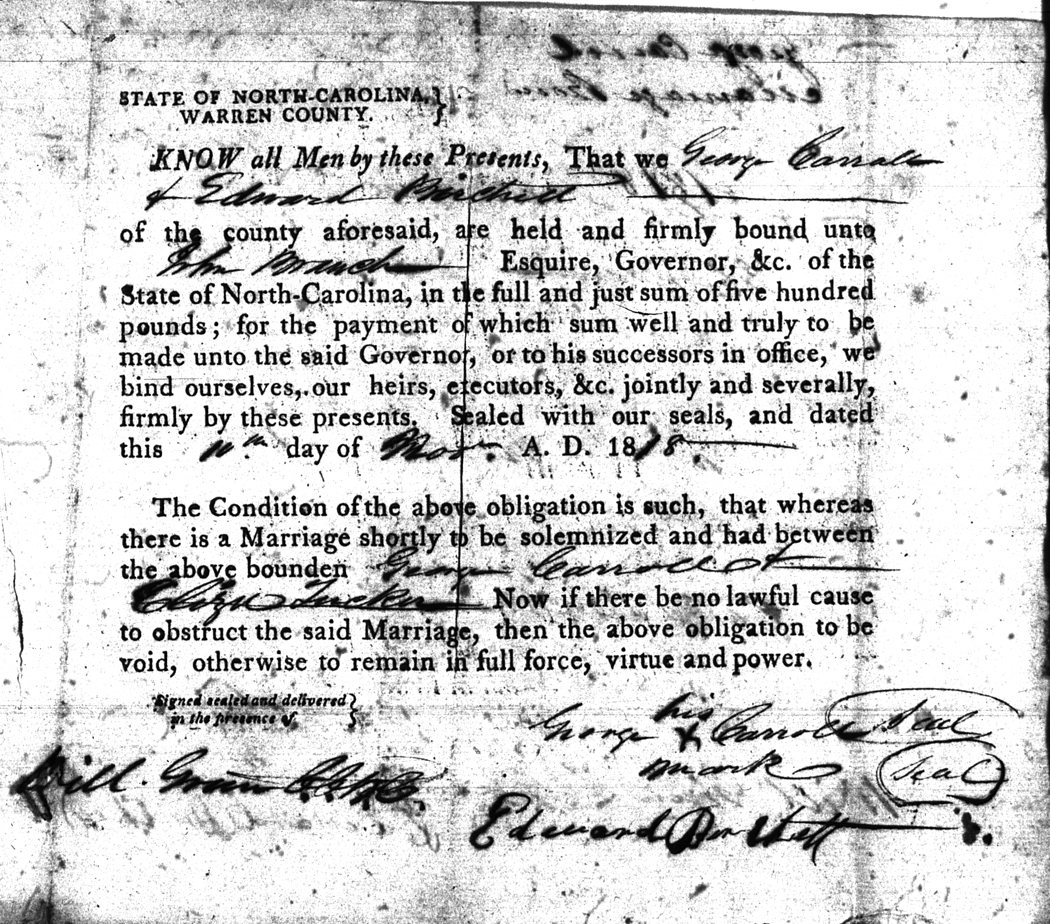 STATE OF NORTH-CAROLINA,
WARREN COUNTY.
KNOW all Men by these Presents, That we George Carroll
& Edward Burchett
of the county aforesaid, are held and firmly bound unto
John Branch Esquire, Governor, &c. of the
State of North-Carolina, in the full and just sum of five hundred
pounds; for the payment of which sum well and truly to be
made unto the said Governor, or to his successors in office, we
bind ourselves, our heirs, executors, &c. jointly and severally,
firmly by these presents. Sealed with our seals, and dated
this day of Nov. A. D. 1818.
The Condition of the above obligation is such, that whereas
there is a Marriage shortly to be solemnized and had between
the above bounden George Carroll &
Eliza Tucker Now if there be no lawful cause
to obstruct the said Marriage, then the above obligation to be
void, otherwise to remain in full force, virtue and power.
Signed sealed and delivered
in the presence of,
his
George X Carroll Seal
mark
Will. Green
Seal
Edward Burchett